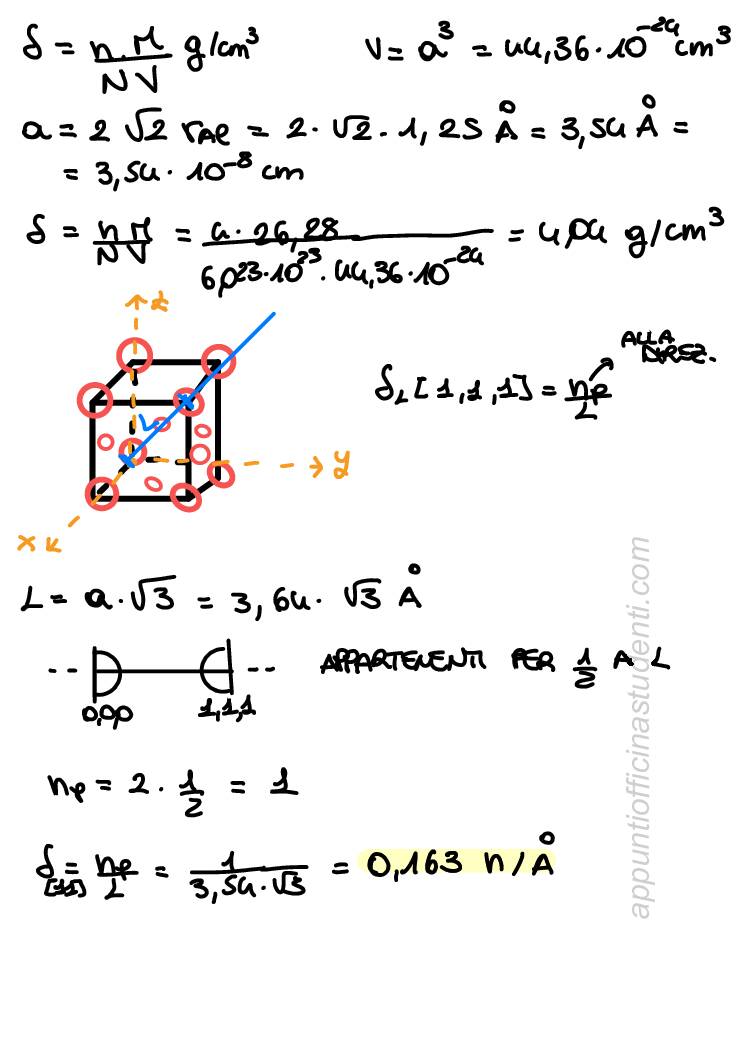 δ = n.M/NV g/cm³ V = a³ = 44,36·10⁻²⁴ cm³
a = 2 √2 rAl = 2·√2·1,25 Å = 3,54 Å =
= 3,54·10⁻⁸ cm
δ = n M/NV = 4·26,28/6,023·10²³·44,36·10⁻²⁴ = 4,04 g/cm³
z
ALLA DIREZ.
δL [1,1,1] = np/L
y
x
L = a·√3 = 3,64·√3 Å
APPARTENENTI PER 1/2 A L
0,0,0 1,1,1
np = 2·1/2 = 1
δ[11] = np/L = 1/3,54·√3 = 0,163 n/Å
appuntiofficinastudenti.com